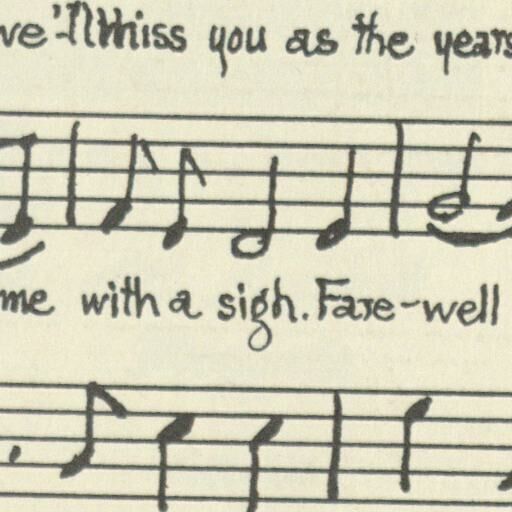 ve'll miss you as the years
me with a sigh. Fare-well